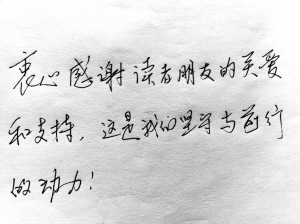 衷心感谢读者朋友的关爱
和支持，这是我们坚守与前行
的动力！